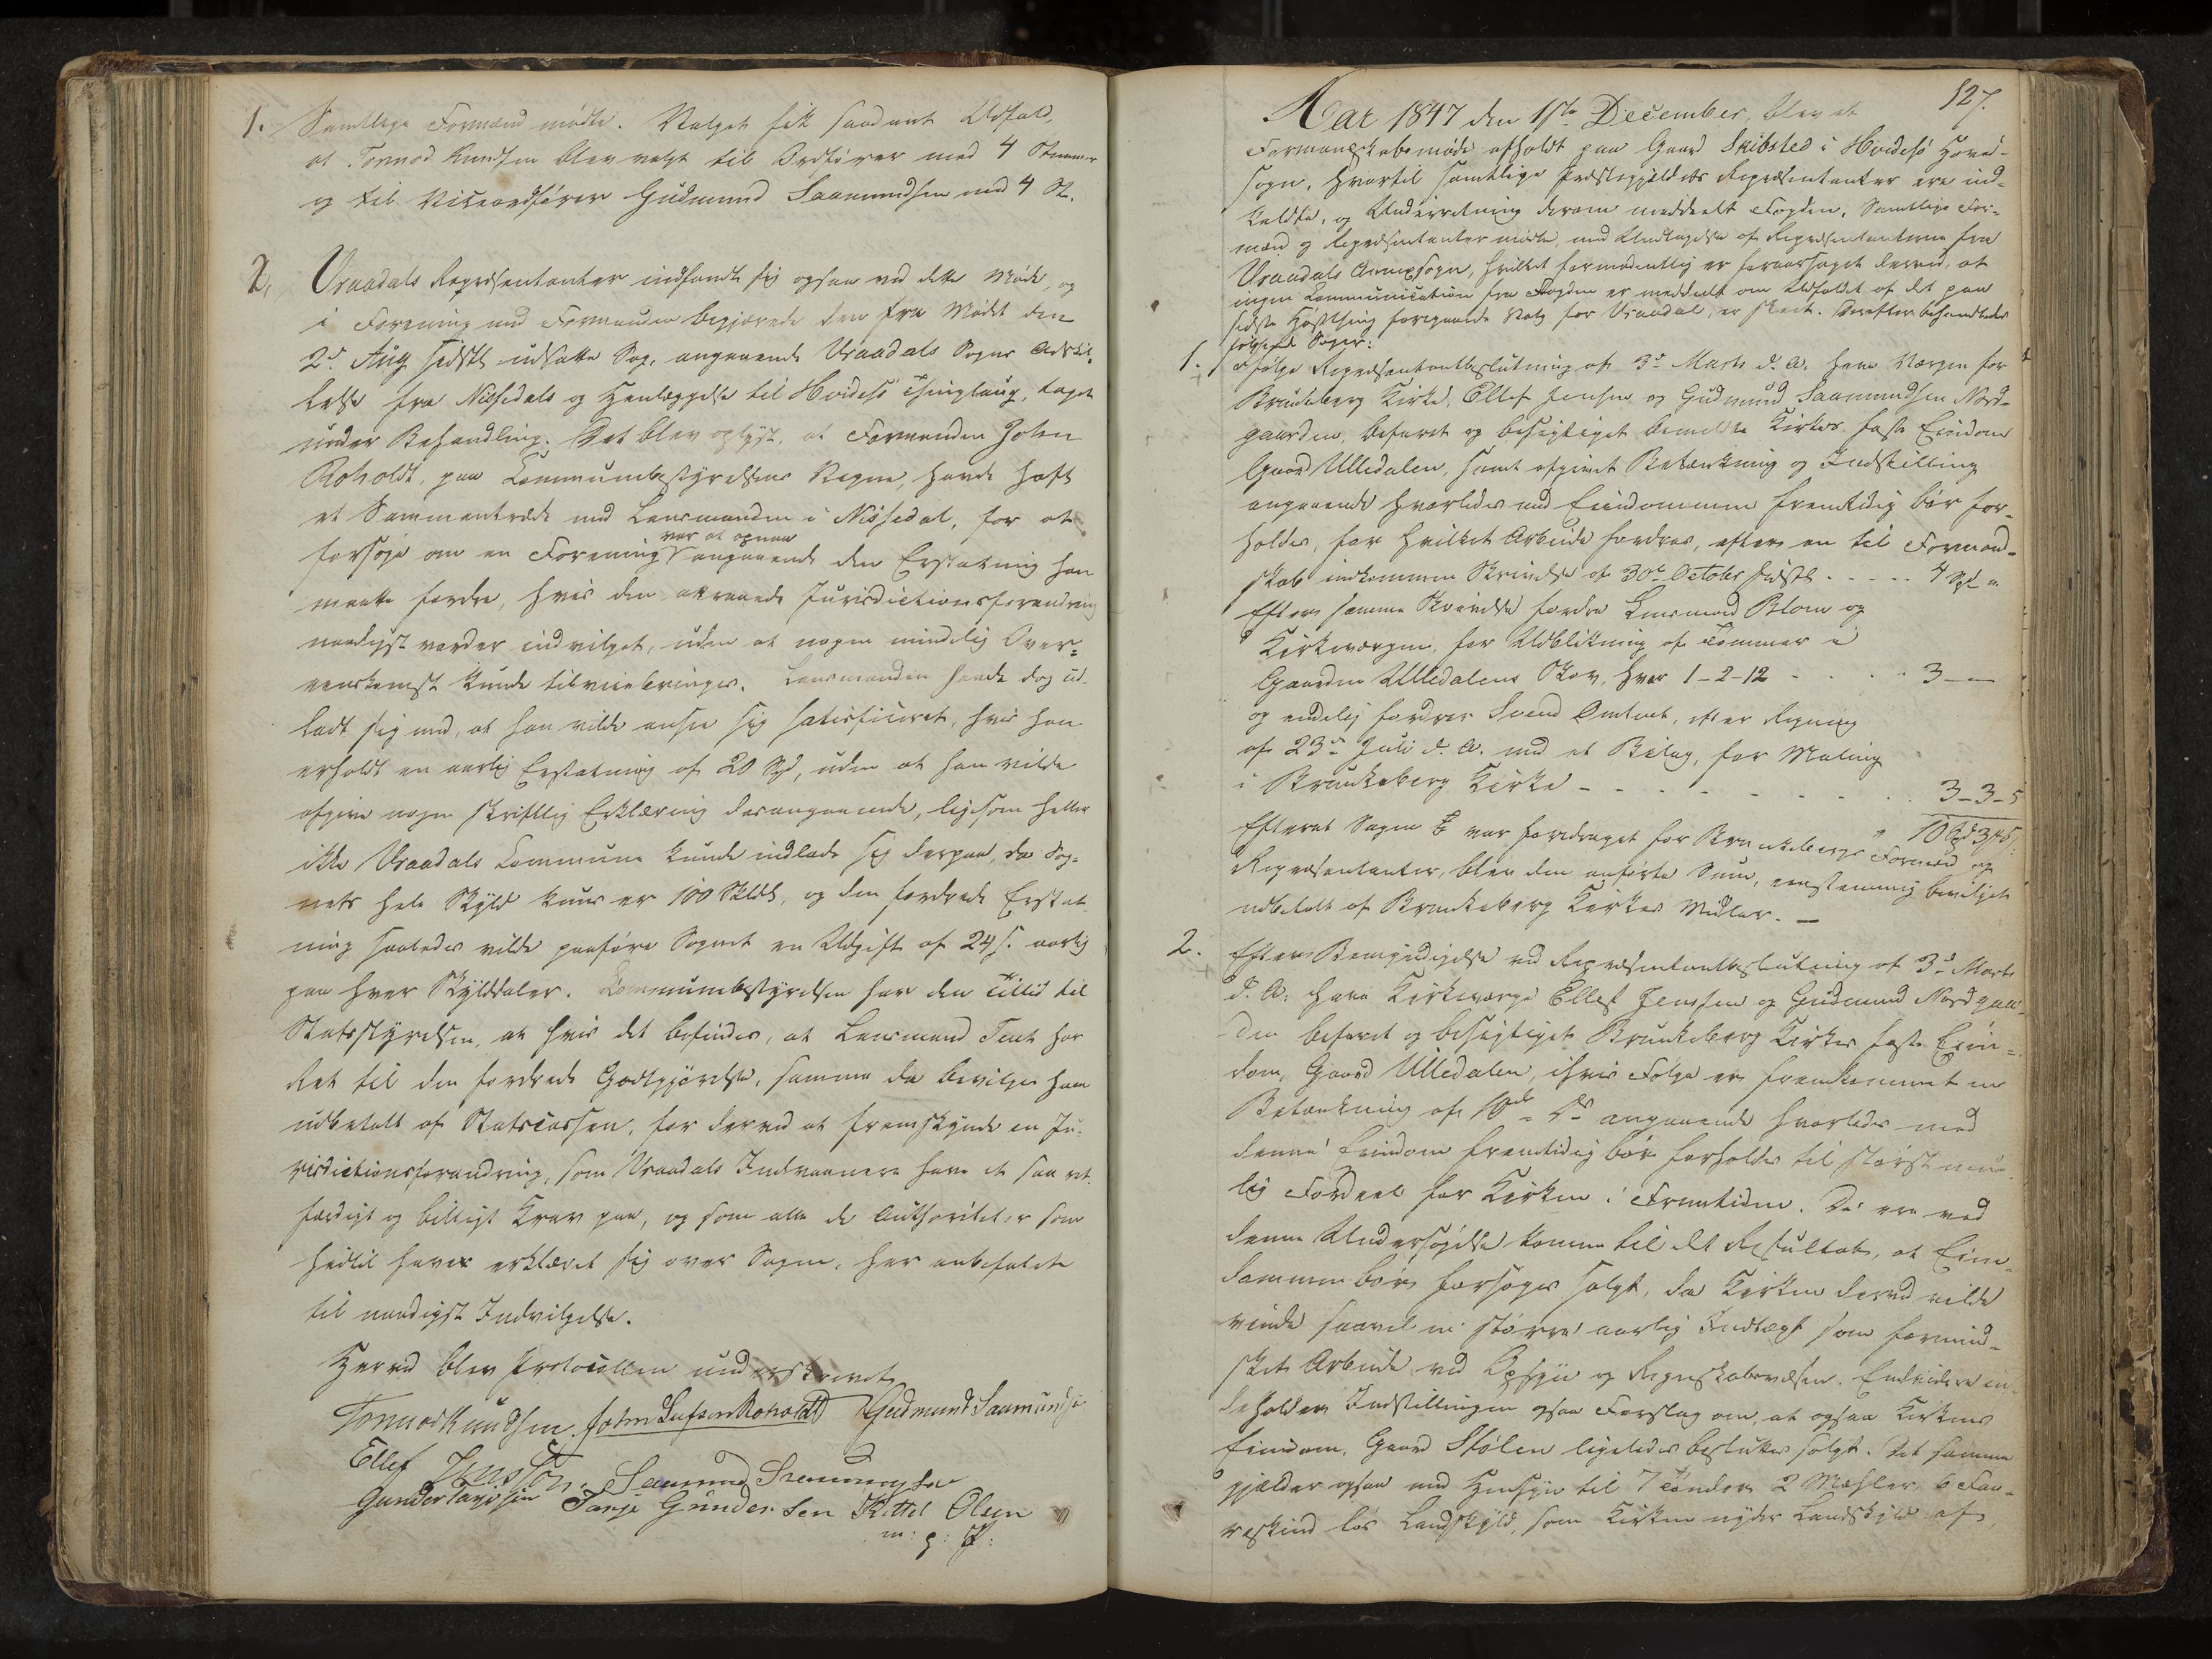 1. Samtlige Formænd mødte. Valget fik saadant Udfald,
at Tormod Knudsen blev valgt til Ordfører med 4 Stemmer
og til Viceordfører Gudmund Saamundsen med 4 St.
2. Vraadals Repræsentanter indfandt sig ogsaa ved dette Møde, og
i Forening med Formanden begjærede den fra Mødet den
2d Aug sidstl. udsatte Sag, angaaende Vraadals Sogns Adskil-
lelse fra Nissedals og Henlæggelse til Hvidesø Thinglaug, taget
under Behandling. Det blev oplyst, at Formanden John
Roholdt, paa Communebestyrelsens Vegne, havde haft
et Sammentræde med Lensmanden i Nissedal, for at
forsøge om en Forening var at opnaa angaaende den Erstatning han
maatte fordre, hvis den attraaede Jurisdictionsforandring
naadigst vorder indvilget, uden at nogen mindelig Over-
eenskomst kunde tilveiebringes. Lensmanden havde dog ud-
ladt sig med, at han vilde ansee sig satisficeret, hvis han
erholdt en aarlig Erstatning af 20 Spd, uden at han vilde
afgive nogen skriftlig Erklæring desangaaende, ligesom heller
ikke Vraadals Commune kunde indlade sig derpaa, da Sog-
nets hele Skyld kuns er 100 Skldlr, og den fordrede Erstat-
ning saaledes vilde paaføre Sognet en Udgift af 24 s. aarlig
paa hver Skylddaler. Communebestyrelsen har den Tillid til
Statsstyrelsen, at hvis det befindes, at Lensmand Tent har
Ret til den fordrede Godtgjørelse, samme da bevilges ham
udbetalt af Statscassen, for derved at fremskynde en Ju-
risdictionsforandring, som Vraadals Indvaanere have et saa ret-
færdigt og billigt Krav paa, og som alle de Authoriteter som
hidtil haver erklæret sig over Sagen, har anbefalet
til naadigst Indvilgelse.
Herved blev Protocollen underskrevet
Tormod Knudsen. John Leifsen Roholdt Gudmund Saamundsen
Ellef Jenssøn. Saamund
Gunder Tarjeisen Tarje Gundersen Kittil Olsen
m: p: P:
127.
Aar 1847 den 1ste December, blev et
Formandskabsmøde afholdt paa Gaard Skibsted i Hvidesø Hoved-
sogn, hvortil samtlige Præstegjeldets Repræsentanter ere ind-
kaldte, og Underretning derom meddeelt Fogden. Samtlige For-
mænd og Repræsentanter mødte, med Undtagelse af Repræsentanterne fra
Vraadals Annexsogn, hvilket formodentlig er foraarsaget derved, at
ingen Communication fra Fogden er meddeelt om Udfaldet af det paa
sidste Høstthing foregaaede Valg for Vraadal, er skeet. Derefter behandledes
følgende Sager:
1. Ifølge Repræsentantbeslutning af 3d Marts d. A. have Værgen for
Brunkeberg Kirke, Ellef Jensen og Gudmund Saamundsen Nord-
gaarden, befaret og besigtiget bemeldte Kirkes faste Eiendom
Gaard Ulledalen, samt afgivet Betænkning og Indstilling
angaaende hvorledes med Eiendommen fremtidig bør for-
holdes, for hvilket Arbeide fordres, efter en til Formand-
skab indkommen Skrivelse af 30te October sidstl. . . . . . 4 Spd "
Efter samme Skrivelse fordre Lensmand Blom og
Kirkeværgen, for Udblikning af Tømmer i
Gaarden Ulledalens Skov, hver 1-2-12 - . . . 3 - —
og endelig fordrer Svend Omtvet, efter Regning
af 23de Juli d. A. med et Bilag, for Maling
i Brunkeberg Kirke - - - - - - - . . 3-3-5
" 10 Spd 3 # 5 s:
Efterat Sagen var foredraget for Brunkebergs Formænd og
Repræsentanter, blev den anførte Sum, eenstemmig bevilget
udbetalt af Brunkeberg Kirkes Midler. —
2. Efter Bemyndigelse ved Repræsentantbeslutning af 3d Marts
d. A. have Kirkeværge Ellef Jenssen og Gudmund Nordgaar-
den befaret og besigtiget Brunkeberg Kirkes faste Eien-
dom, Gaard Ulledalen, ihvis Følge er fremkommet en
Betænkning af angaaende hvorledes med
denne Eiendom fremtidig bør forholdes til størst mue-
lig Fordeel for Kirken i Fremtiden. De ere ved
denne Undersøgelse komne til det Resultat, at Eien-
dommen bør forsøges solgt, da Kirken derved vilde
vinde saavel en større aarlig Indtægt som formind-
sket Arbeide ved Opsyn og Regnskabsvæsen. Endvidere in-
deholder Indstillingen ogsaa Forslag om, at ogsaa Kirkens
Eiendom, Gaard Stølen ligeledes besluttes solgt. Det samme
gjælder ogsaa med Hensyn til 7 Tønder 2 Mæhler 6 Faa-
reskind løs Landskyld, som Kirken nyder Landskyld af,